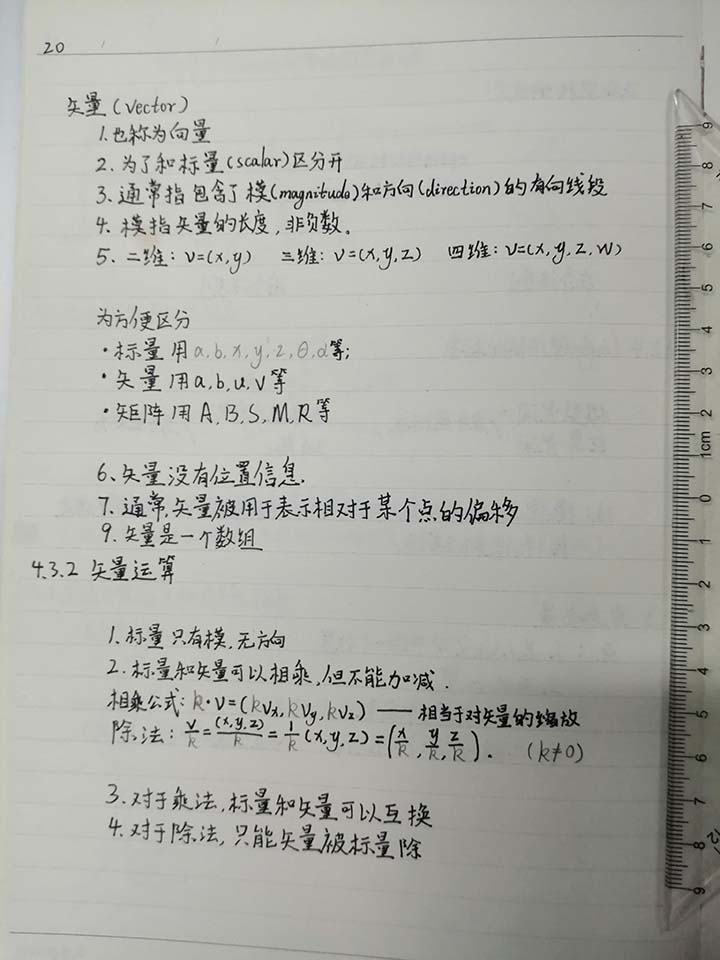 20
矢量(vector)
1.也称为向量
2.为了和标量(scalar)区分开
3.通常指包含了模(magnitude)和方向(direction)的有向线段
4.模指矢量的长度,非负数。
5.二维:v=(x,y) 三维:v=(x,y,z) 四维:v=(x,y,z,w)
为方便区分
·标量用a,b,x,y,z,θ,α等;
·矢量用a,b,u,v等
·矩阵用A,B,S,M,R等
6、矢量没有位置信息.
7.通常,矢量被用于表示相对于某个点的偏移
9.矢量是一个数组
4.3.2 矢量运算
1.标量只有模,无方向
2.标量和矢量可以相乘,但不能加减.
相乘公式:k·v=(kvx,kvy,kvz) —— 相当于对矢量的缩放
除法:v/k=(x,y,z)/k=1/k(x,y,z)=(x/k,y/k,z/k). (k≠0)
3.对于乘法,标量和矢量可以互换
4.对于除法,只能矢量被标量除
9 8 7 6 5 4 3 2 1cm 0 1 2 3 4 5 6 7 8 9